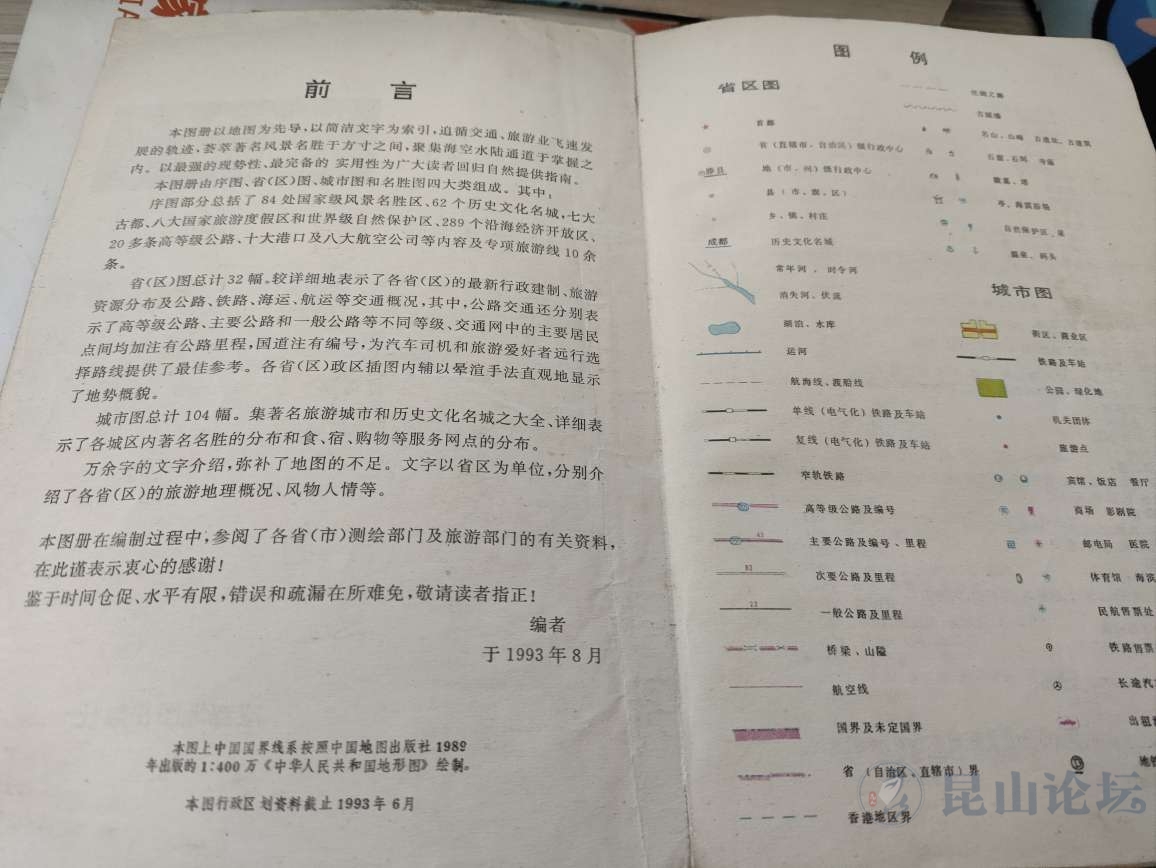 前 言
本图册以地图为先导,以简洁文字为索引,追循交通、旅游业飞速发
展的轨迹,荟萃著名风景名胜于方寸之间,聚集海空水陆通道于掌握之
内。以最强的现势性、最完备的 实用性为广大读者回归自然提供指南。
本图册由序图、省(区)图、城市图和名胜图四大类组成。其中:
序图部分总括了84处国家级风景名胜区、62个历史文化名城,七大
古都、八大国家旅游度假区和世界级自然保护区、289个沿海经济开放区、
20多条高等级公路、十大港口及八大航空公司等内容及专项旅游线10余
条。
省(区)图总计32幅。较详细地表示了各省(区)的最新行政建制、旅游
资源分布及公路、铁路、海运、航运等交通概况,其中,公路交通还分别表
示了高等级公路、主要公路和一般公路等不同等级、交通网中的主要居民
点间均加注有公路里程,国道注有编号,为汽车司机和旅游爱好者远行选
择路线提供了最佳参考。各省(区)政区插图内辅以晕渲手法直观地显示
了地势概貌。
城市图总计104幅。集著名旅游城市和历史文化名城之大全、详细表
示了各城区内著名名胜的分布和食、宿、购物等服务网点的分布。
万余字的文字介绍,弥补了地图的不足。文字以省区为单位,分别介
绍了各省(区)的旅游地理概况、风物人情等。
本图册在编制过程中,参阅了各省(市)测绘部门及旅游部门的有关资料,
在此谨表示衷心的感谢!
鉴于时间仓促、水平有限,错误和疏漏在所难免,敬请读者指正!
编者
于1993年8月
本图上中国国界线系按照中国地图出版社1989
年出版的1:400万《中华人民共和国地形图》绘制。
本图行政区划资料截止1993年6月
图 例
省区图
首都
省(直辖市、自治区)级行政中心
地(市、州)级行政中心
县(市、旗、区)
乡、镇、村庄
成都 历史文化名城
常年河,时令河
消失河、伏流
湖泊、水库
运河
航海线、渡船线
单线(电气化)铁路及车站
复线(电气化)铁路及车站
窄轨铁路
高等级公路及编号
主要公路及编号、里程
次要公路及里程
一般公路及里程
桥梁、山隘
航空线
国界及未定国界
省(自治区、直辖市)界
香港地区界
丝绸之路
古长城
名山、山峰 古遗址、古建筑
石窟、石刻 寺庙
陵墓、塔
亭、海滨浴场
自然保护区、泉
温泉、码头
城市图
街区、商业区
铁路及车站
公园、绿化地
机关团体
旅游点
宾馆、饭店 餐厅
商场 影剧院
邮电局 医院
体育馆 海滨
民航售票处
铁路售票
长途汽
出租
地铁
昆山论坛